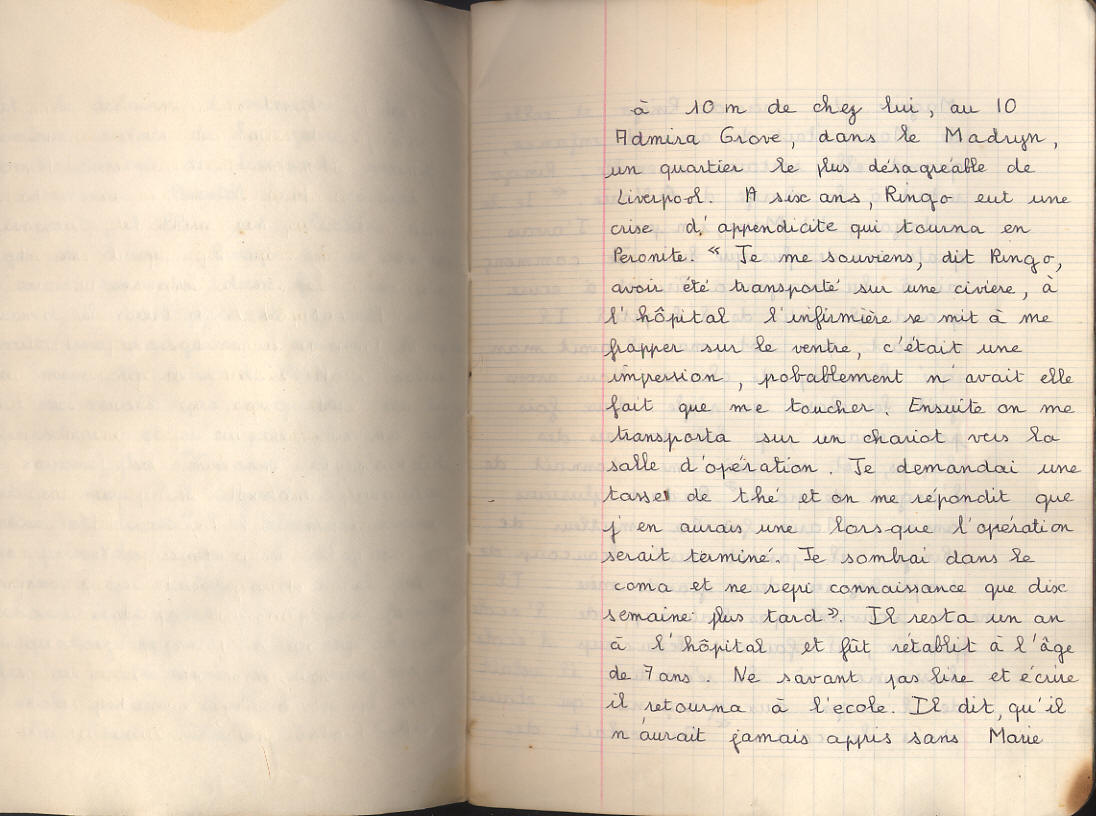 à 10 m de chez lui, au 10
Admira Grove, dans le Madryn,
un quartier le plus désagréable de
Liverpool. A six ans, Ringo eut une
crise d'appendicite qui tourna en
Peronite. " Je me souviens, dit Ringo,
avoir été transporté sur une civière, à
l'hôpital l'infirmière se mit à me
frapper sur le ventre, c'était une
impression, pobablement n'avait elle
fait que me toucher Ensuite on me
transporta sur un chariot vers la
salle d'opération. Je demandai une
tasse de thé et on me répondit que
j'en aurais une lors-que l'opération
serait terminé. Je sombrai dans le
coma et ne repi connaissance que dix
semaine plus tard ". Il resta un an
à l'hôpital et fût rétablit à l'âge
de 7 ans. Ne savant pas lire et écrire
il retourna à l'ecole. Il dit, qu'il
n'aurait jamais appris sans Marie